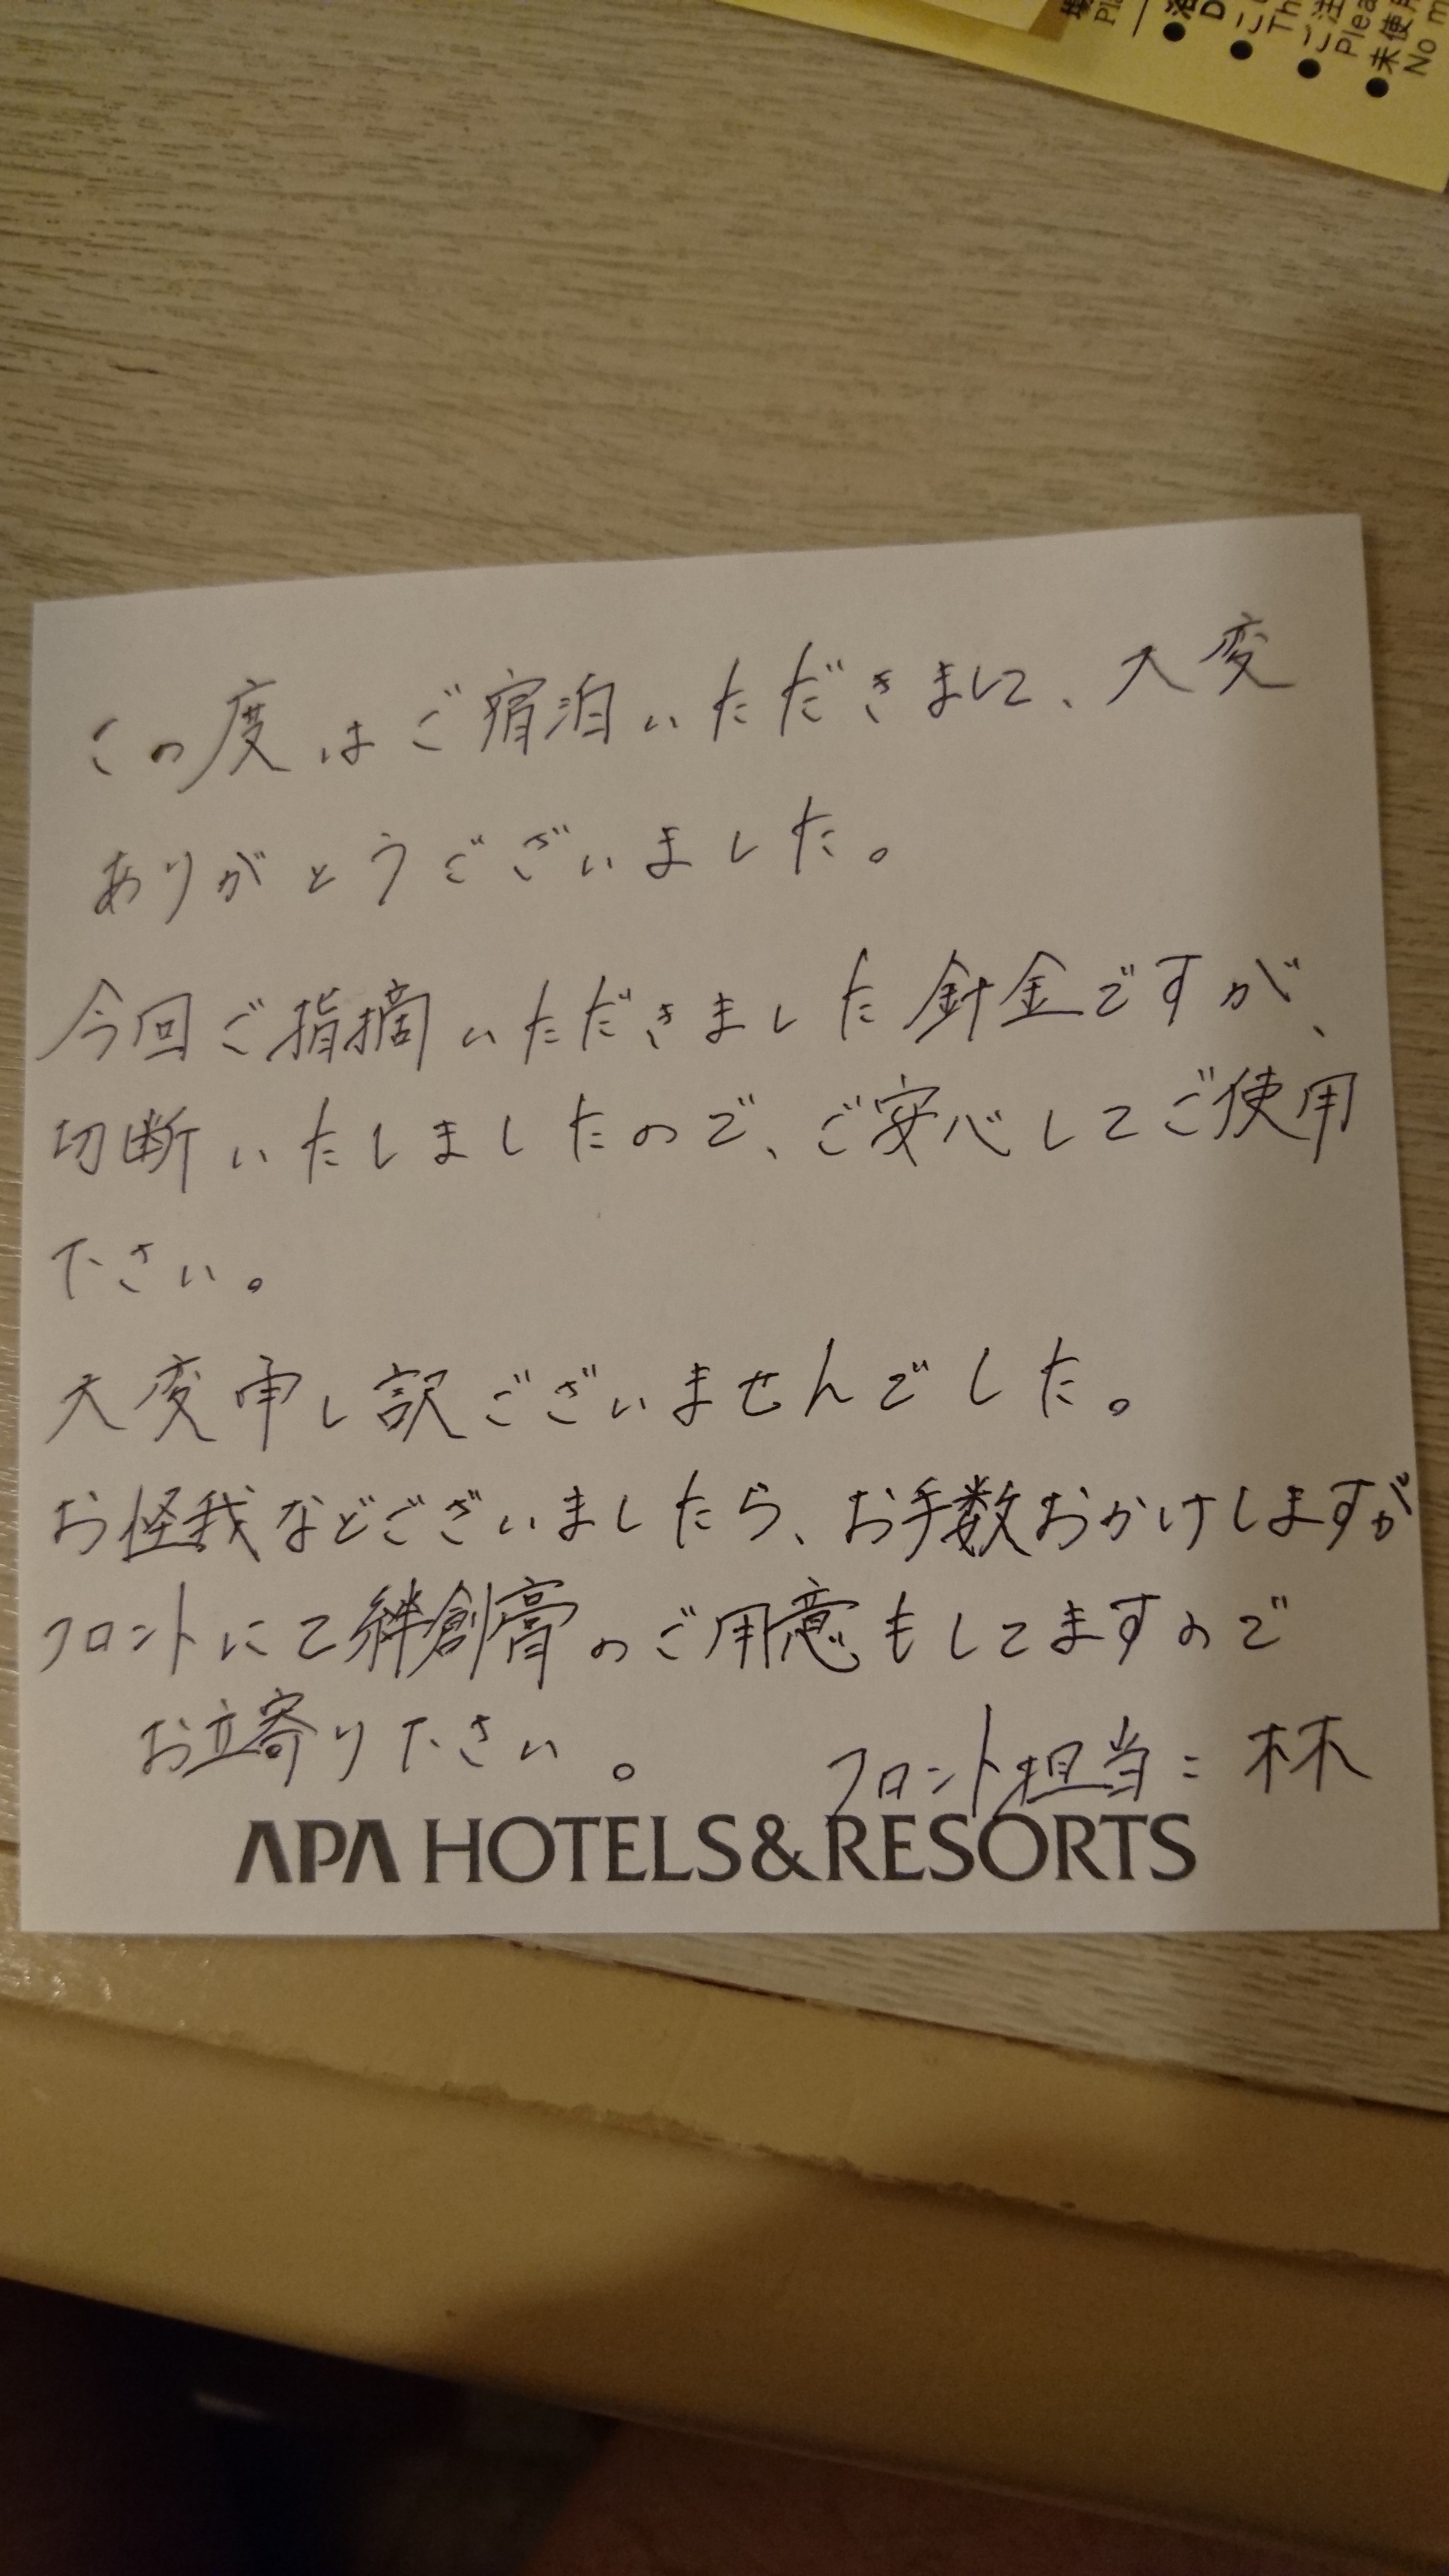 この度はご宿泊いただきまして、大変
ありがとうございました。
今回ご指摘いただきました針金ですが、
切断いたしましたので、ご安心してご使用
下さい。
大変申し訳ございませんでした。
お怪我などございましたら、お手数おかけしますが
フロントにて絆創膏のご用意もしてますので
お立寄り下さい。 フロント担当:林
APA HOTELS&RESORTS